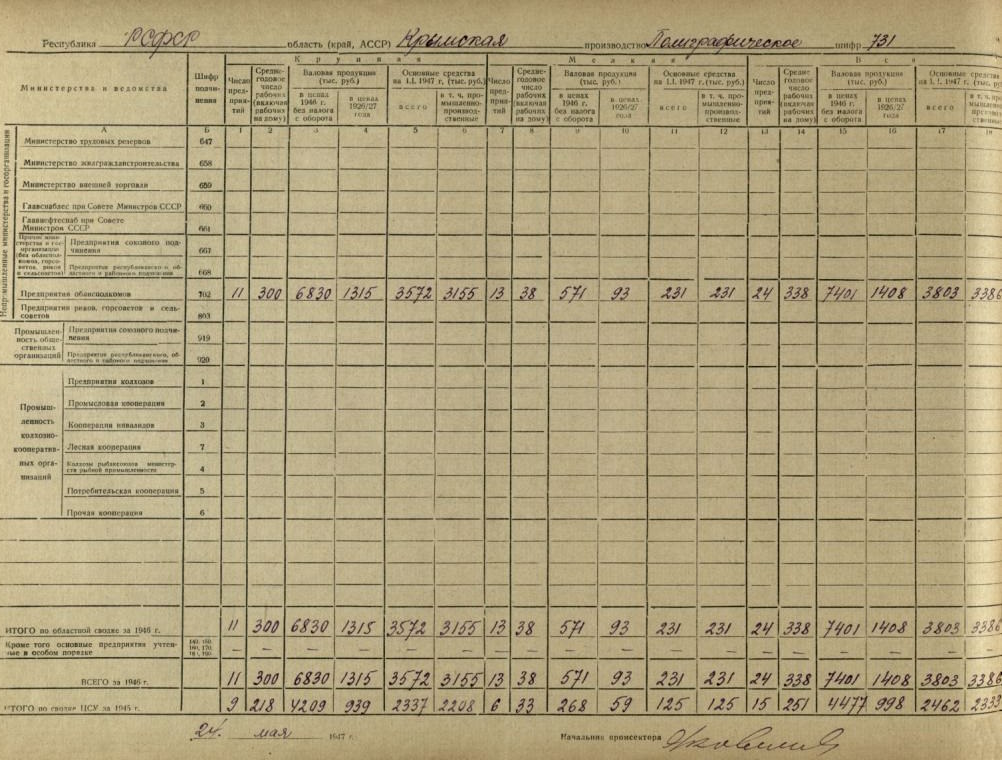 Республика РСФСР область (край, АССР) Крымская производство Полиграфическое шифр 731
Крупная Мелкая Вся
Министерства и ведомства
Шифр подчинения
Число предприятий
Среднегодовое число рабочих (включая рабочих на дому)
Валовая продукция (тыс. руб.)
в ценах 1946 г. без налога с оборота
в ценах 1926/27 года
Основные средства на 1.I. 1947 г. (тыс. руб.)
всего
в т. ч. промышленно-производственные
Число предприятий
Среднегодовое число рабочих (включая рабочих на дому)
Валовая продукция (тыс. руб.)
в ценах 1946 г. без налога с оборота
в ценах 1926/27 года
Основные средства на 1.I. 1947 г. (тыс. руб.)
всего
в т. ч. промышленно-производственные
Число предприятий
Среднегодовое число рабочих (включая рабочих на дому)
Валовая продукция (тыс. руб.)
в ценах 1946 г. без налога с оборота
в ценах 1926/27 года
Основные средства на 1.I. 1947 г. (тыс.
всего
в т. ч.
А Б 1 2 3 4 5 6 7 8 9 10 11 12 13 14 15 16 17 18
Непромышленные министерства и госорганизации
Министерство трудовых резервов 647
Министерство жилгражданстроительства 658
Министерство внешней торговли 659
Главснаблес при Совете Министров СССР 660
Главнефтеснаб при Совете
Министров СССР 661
Предприятия союзного подчинения 667
Предприятия республиканского и областного и районного подчинения 668
Предприятия облисполкомов 702 11 300 6830 1315 3572 3155 13 38 571 93 231 231 24 338 7401 1408 3803 3386
Предприятия риков, горсоветов и сельсоветов 803
Промышленность общественных организаций
Предприятия союзного подчинения 919
Предприятия республиканского, областного и районного подчинения 920
Промышленность колхозно-кооперативных организаций
Предприятия колхозов 1
Промысловая кооперация 2
Кооперация инвалидов 3
Лесная кооперация 7
Колхозы рыбаксоюзов министерств рыбной промышленности 4
Потребительская кооперация 5
Прочая кооперация 6
ИТОГО по областной сводке за 1946 г. 11 300 6830 1315 3572 3155 13 38 571 93 231 231 24 338 7401 1408 3803 3386
Кроме того основные предприятия учтенные в особом порядке — — — — — — — — — — — — — — — — — —
ВСЕГО за 1946 г. 11 300 6830 1315 3572 3155 13 38 571 93 231 231 24 338 7401 1408 3803 3386
ИТОГО по сводке ЦСУ за 1945 г. 9 218 4209 939 2337 2208 6 33 268 59 125 125 15 251 4477 998 2462 2333
24. мая 1947 г.
Начальник промсектора